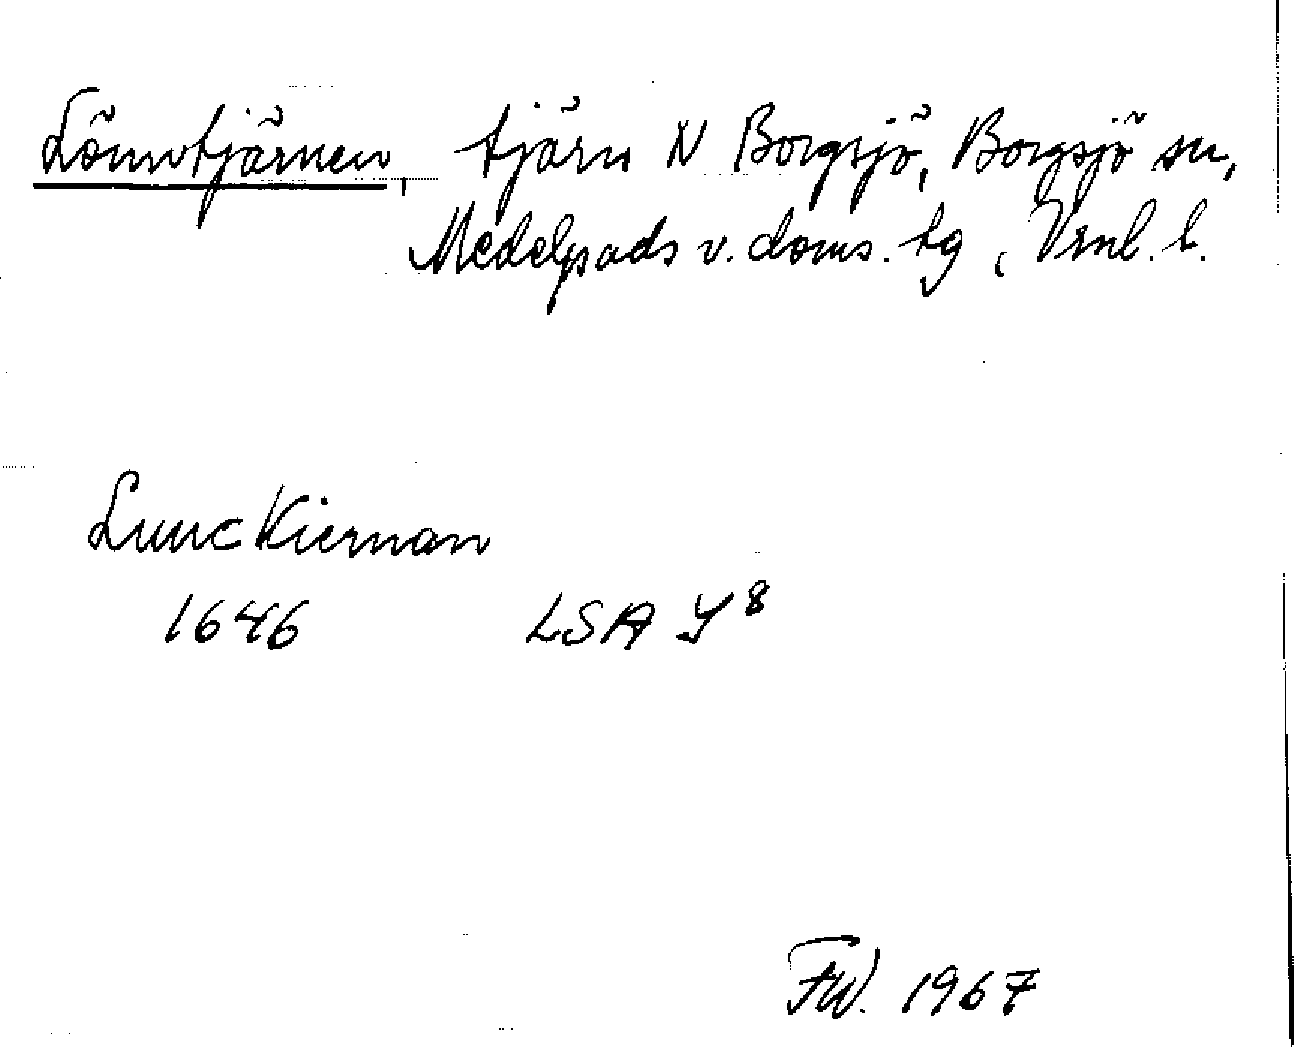 Lönntjärnen, tjärn N Borgsjö, Borgsjö sn,
Medelpads v. doms. tg, Vrnl. l.
Lunckiernan
1646 LSA Y 8
FW. 1967